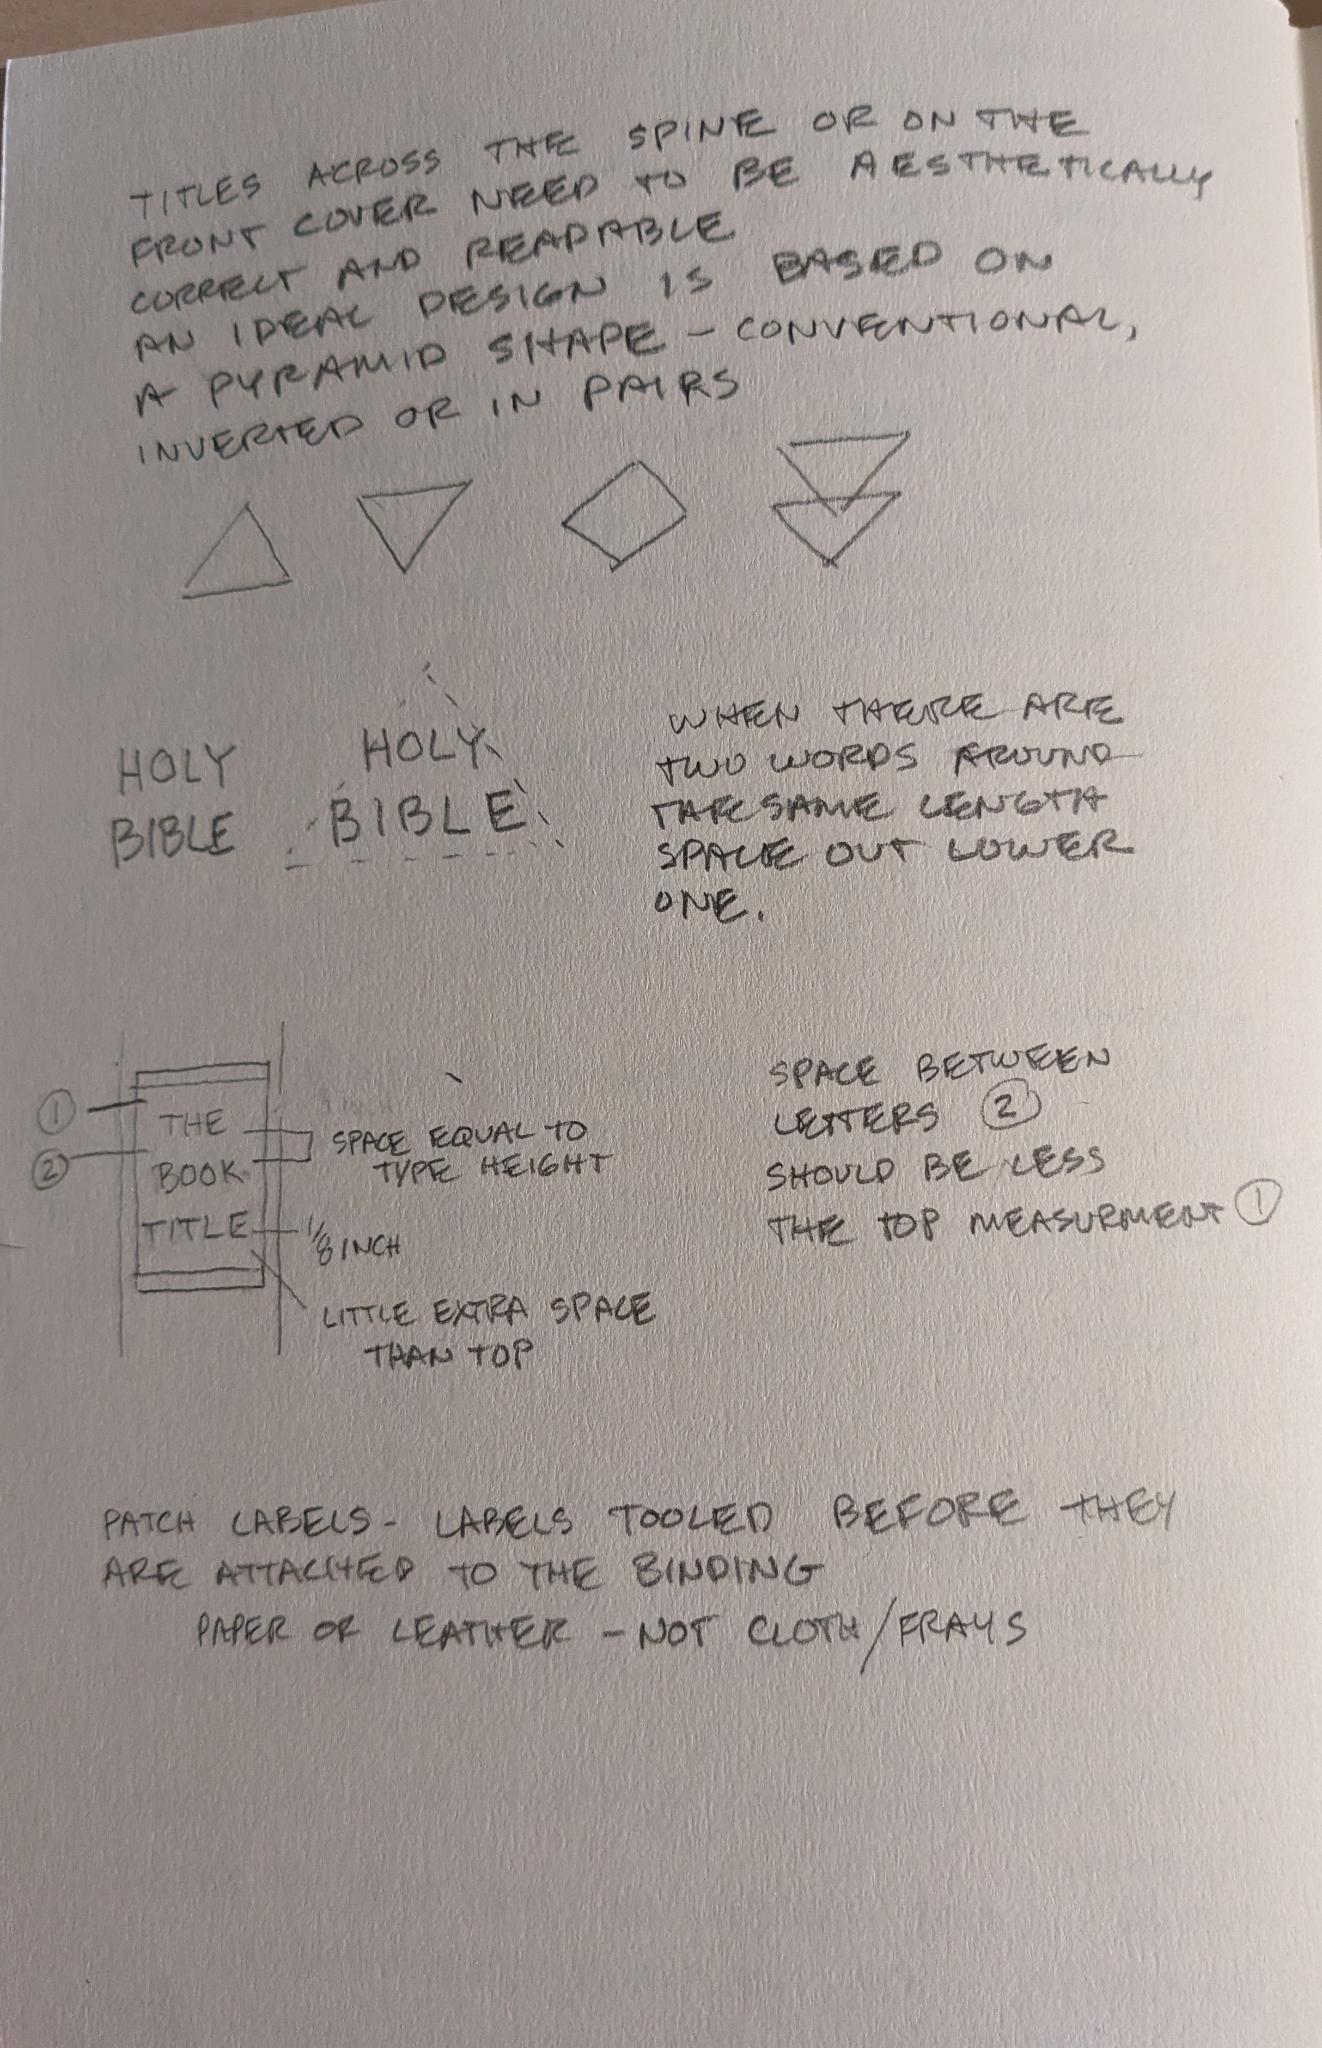 TITLES ACROSS THE SPINE OR ON THE
FRONT COVER NEED TO BE AESTHETICALLY
CORRECT AND READABLE
AN IDEAL DESIGN IS BASED ON
A PYRAMID SHAPE - CONVENTIONAL,
INVERTED OR IN PAIRS
HOLY
BIBLE
HOLY
BIBLE
WHEN THERE ARE
TWO WORDS AROUND
THE SAME LENGTH
SPACE OUT LOWER
ONE.
1
2
THE
BOOK
TITLE
SPACE EQUAL TO
TYPE HEIGHT
1/8 INCH
LITTLE EXTRA SPACE
THAN TOP
SPACE BETWEEN
LETTERS 2
SHOULD BE LESS
THE TOP MEASURMENT 1
PATCH LABELS - LABELS TOOLED BEFORE THEY
ARE ATTACHED TO THE BINDING
PAPER OR LEATHER - NOT CLOTH/FRAYS